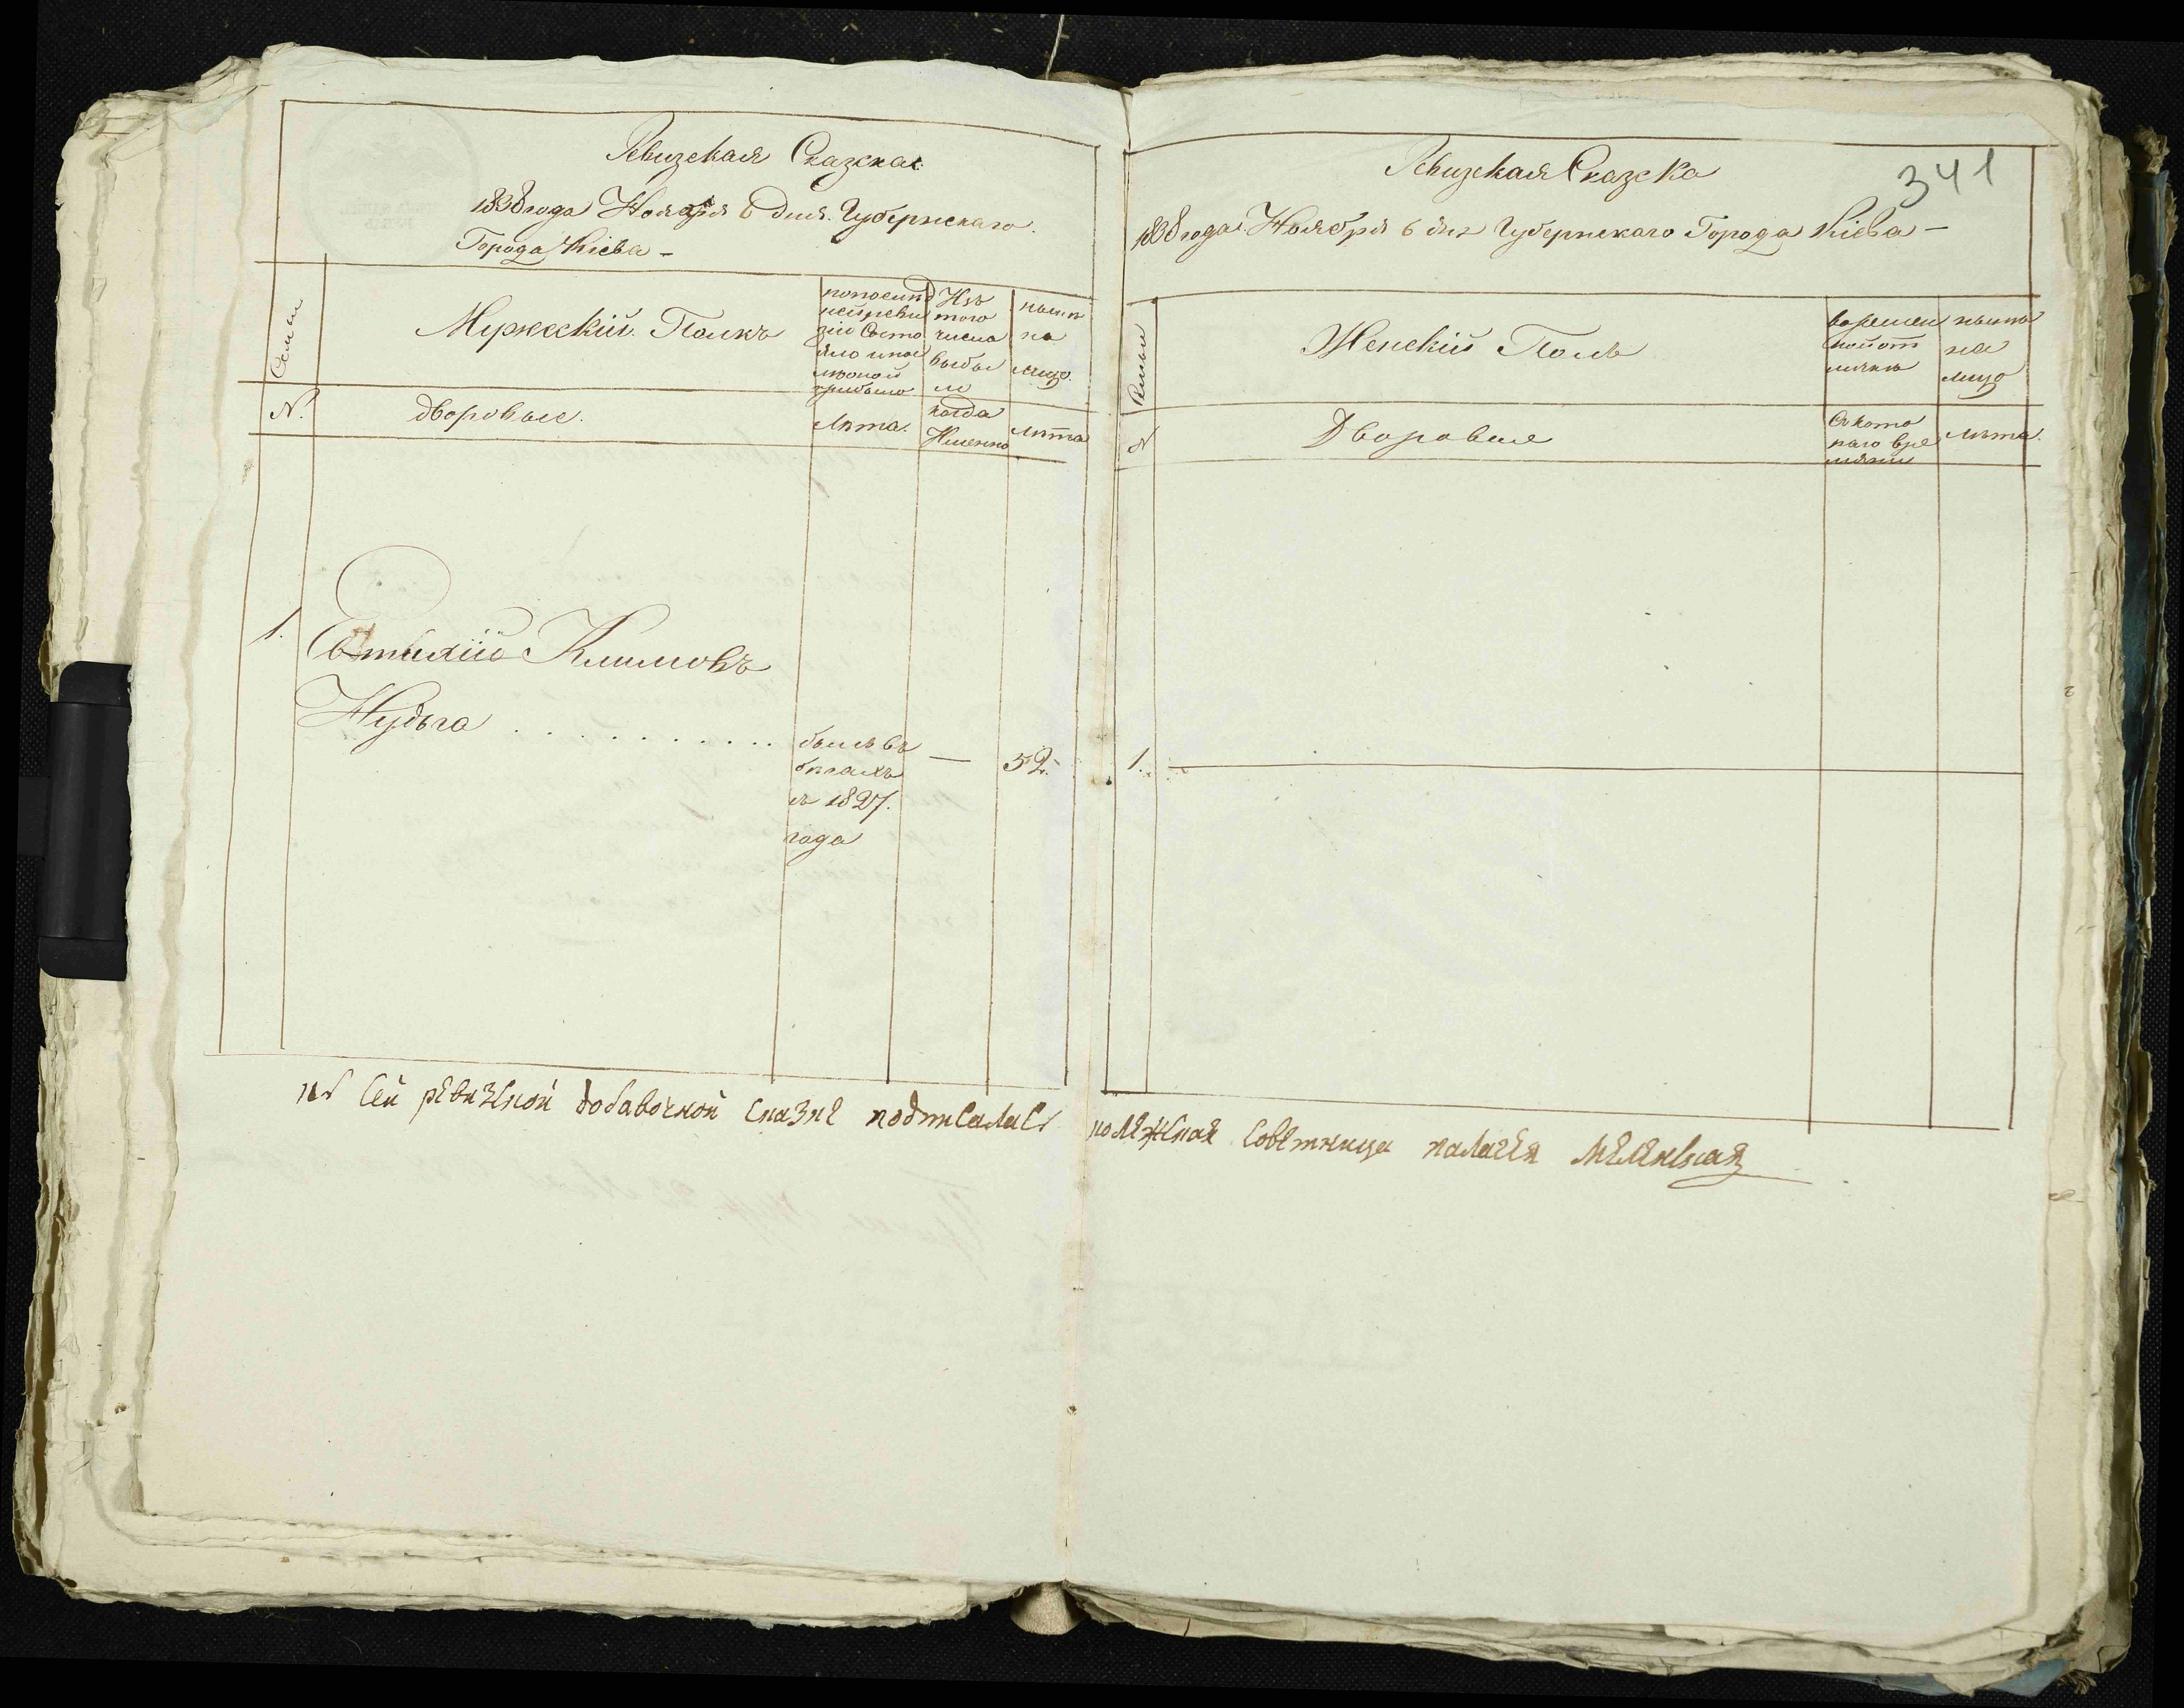 Ревизская Сказка
1838 года Ноября 6 дня. Губернскаго
Города Кіева -
Семьи
Мужескій Полъ
по последней ревизіи состояло и после оной прибыло
Изъ того числа выбыло
ныне на лицо.
N.
дворовые.
Лѣта.
когда Именно
Лѣта
1. Евтихій Климовъ
Нудьга . . . . . . . . . . . былъ въ — 52.
бѣгахъ
съ 1827.
года
Ревизская Сказка
341
1838 года Ноября 6 дня Губернскаго Города Кіева -
Семьи
Женскій Полъ
во временной отлучке
ныне на лицо
N
Дворовые
Съ котораго времени
Лѣта.
1.
к сей ревизской добавочной сказке подписалась колежская советница палагея